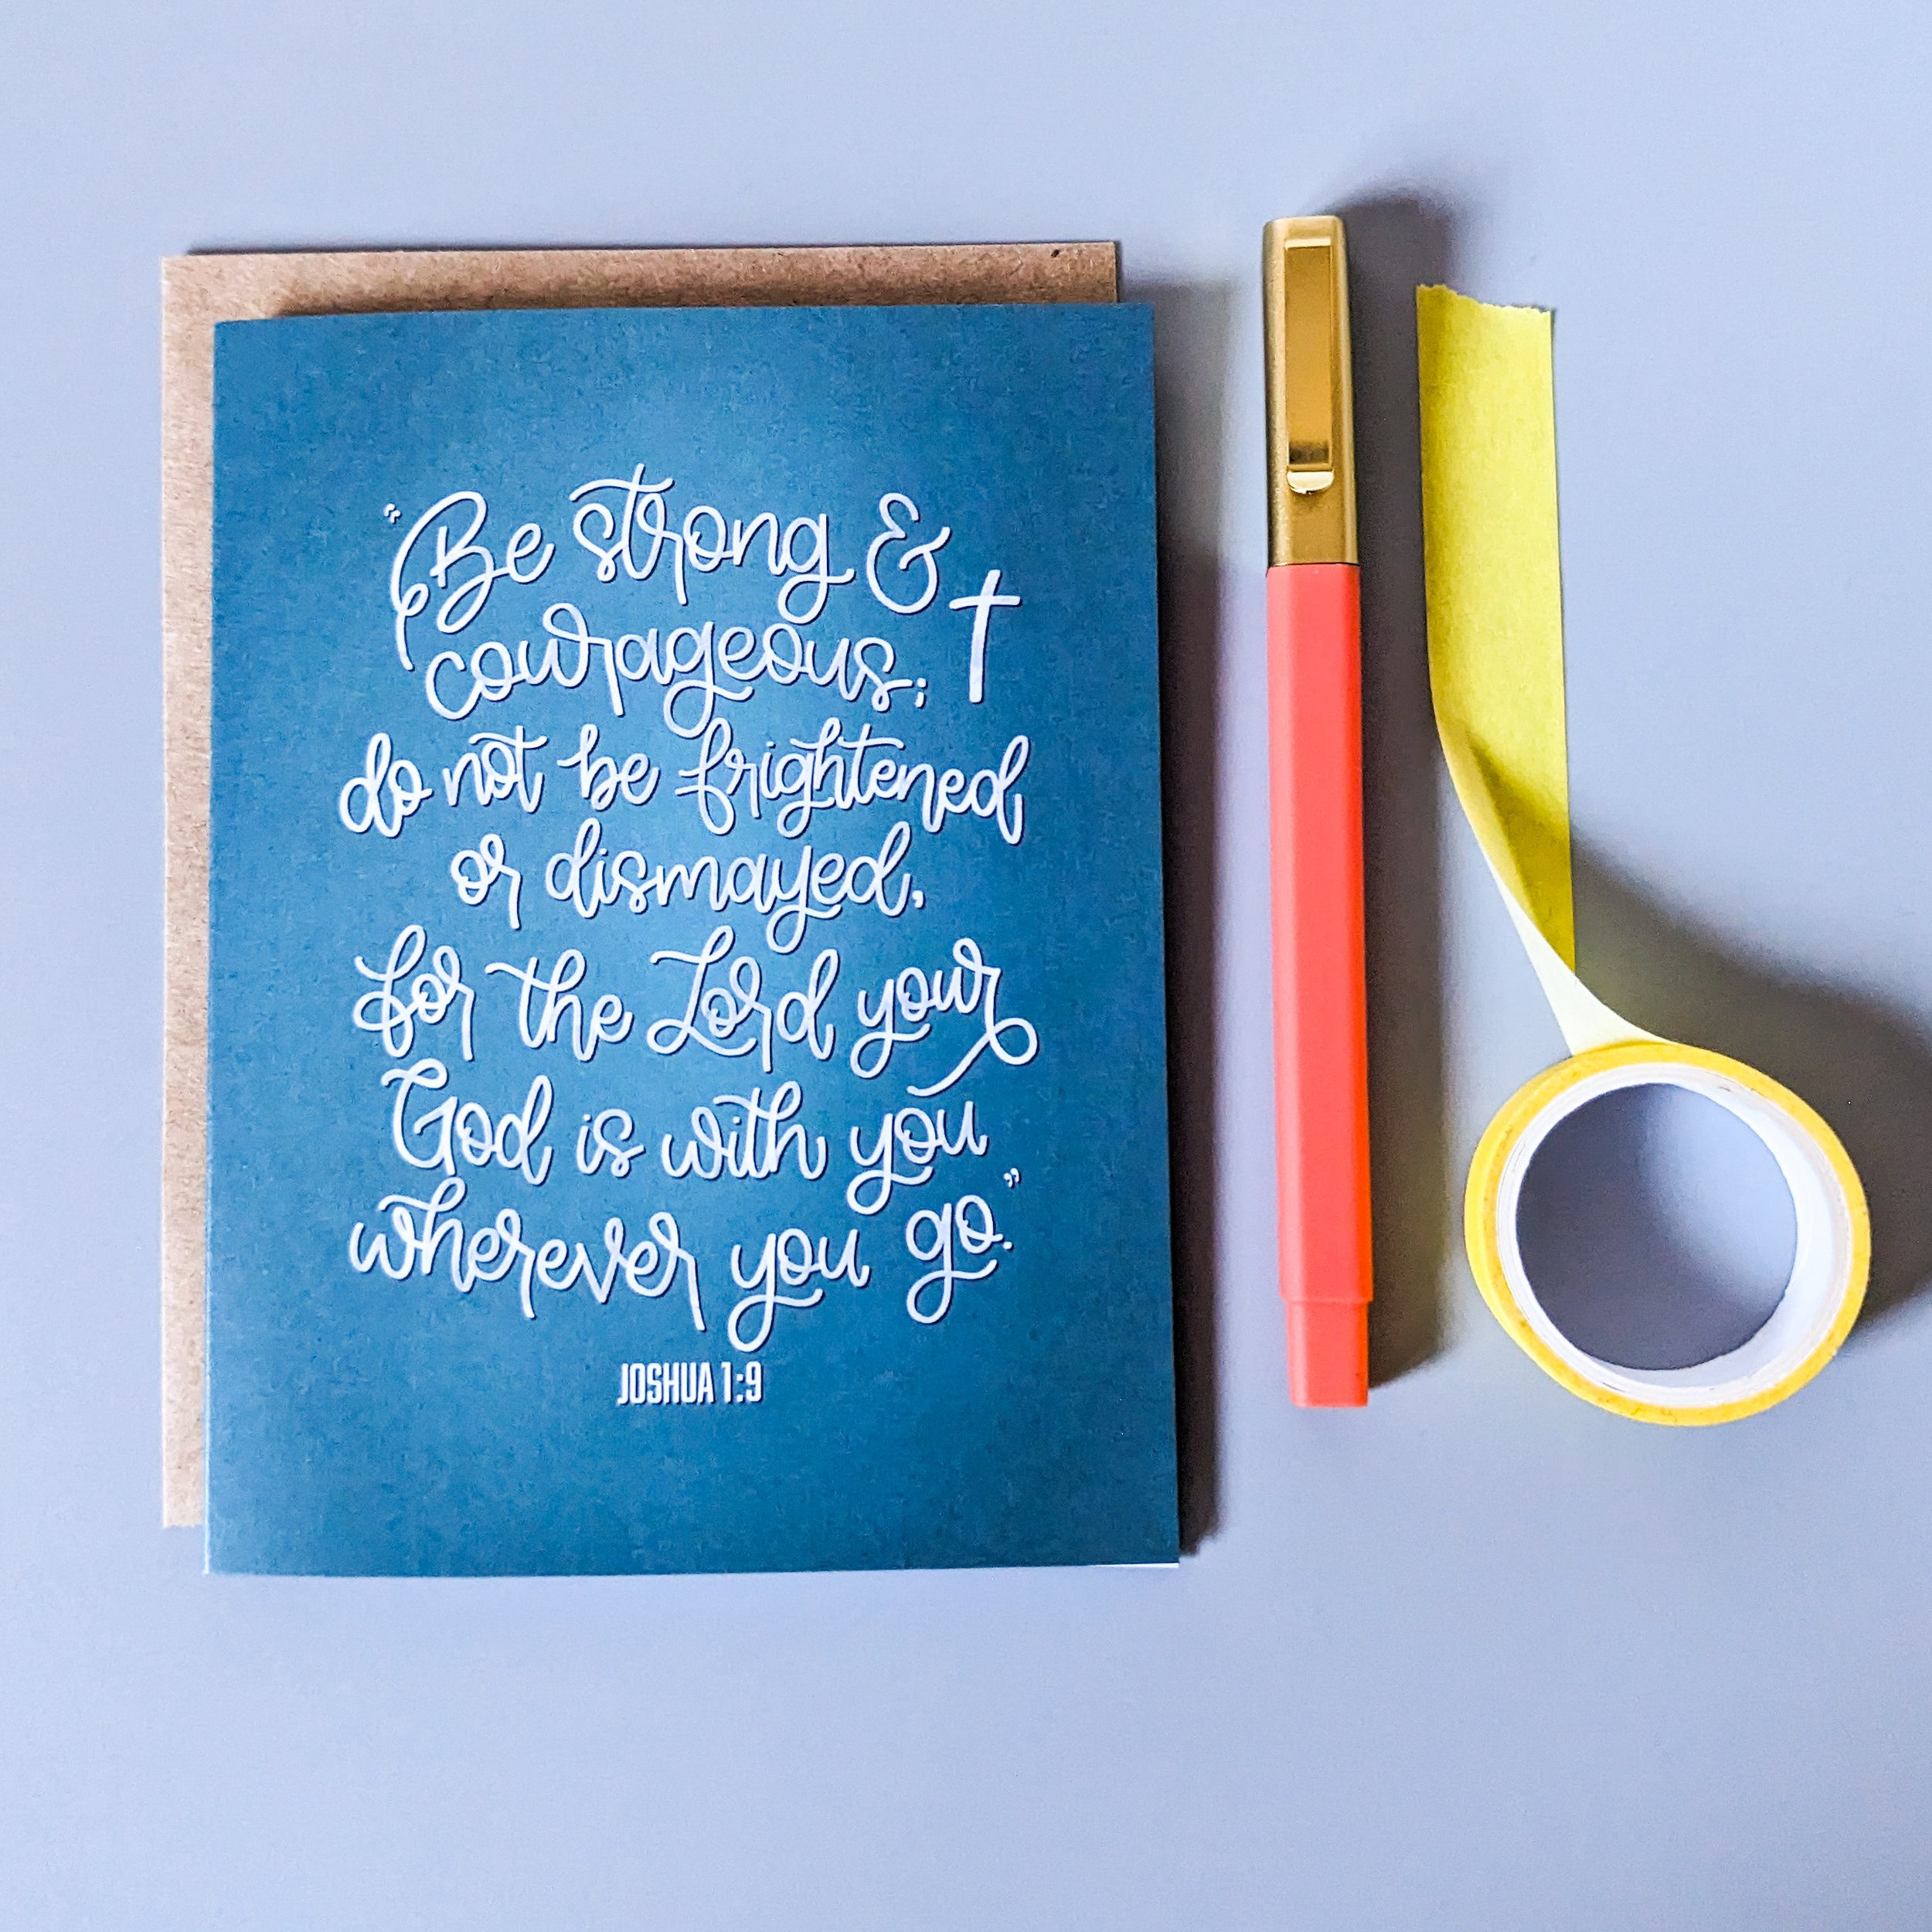 “Be strong &
courageous;
do not be frightened
or dismayed,
for the Lord your
God is with you
wherever you go.”
JOSHUA 1:9